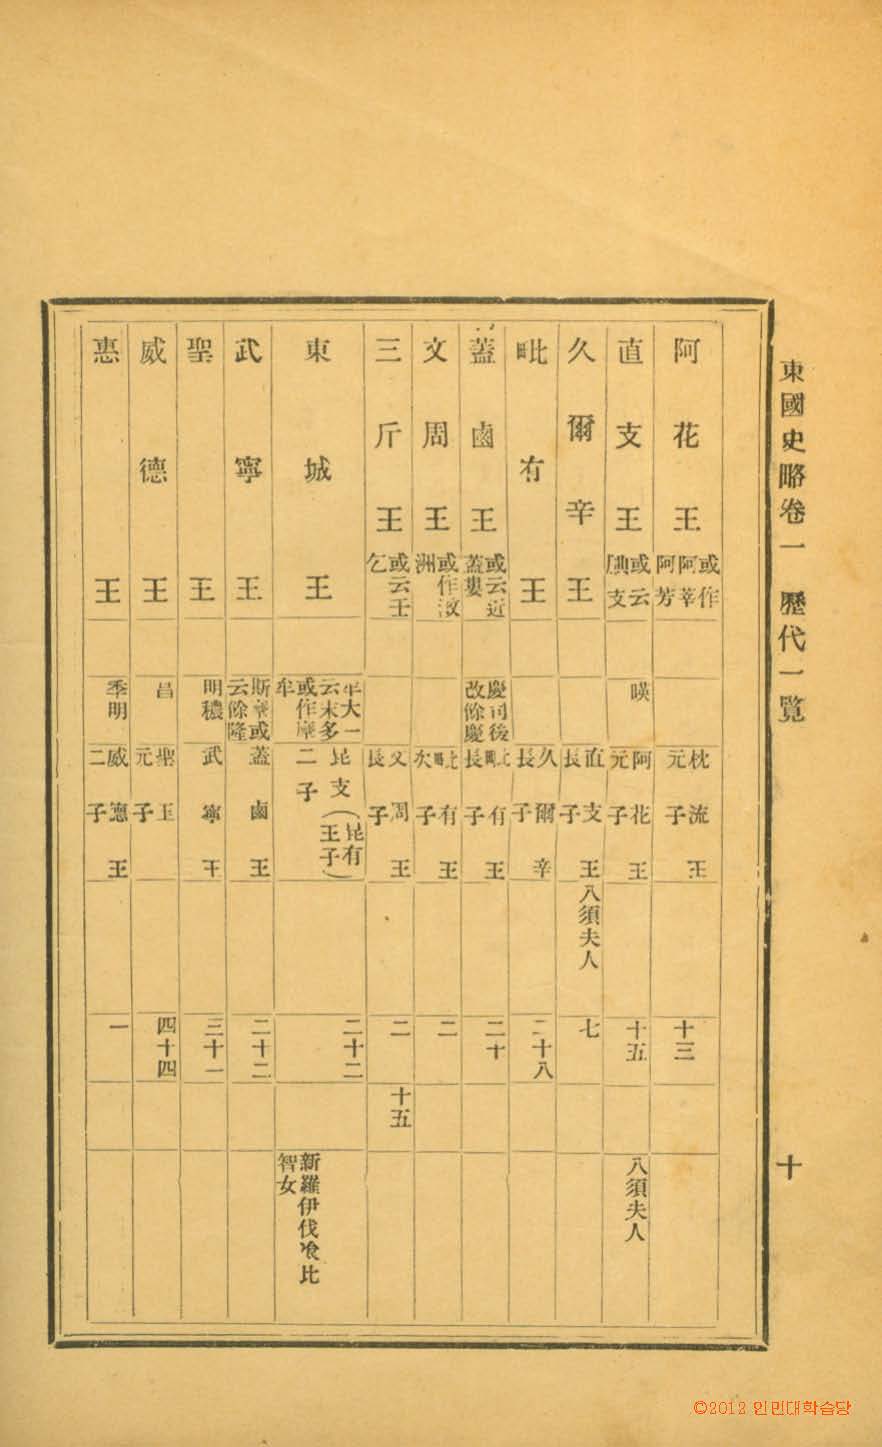 東國史略卷一 歷代一覽
十
阿花王 或作阿莘阿芳
枕流王元子
十三
直支王 或云腆支
㬇
阿花王元子
十五
八須夫人
久爾辛王
直支王長子
八須夫人
七
毗有王
久爾辛長子
二十八
蓋鹵王 或云近蓋婁
慶司後改餘慶
毗有王長子
二十
文周王 或作汶洲
毗有王次子
二
三斤王 或云壬乞
文周王長子
二
十五
東城王
牟大一云末多或作摩牟
昆支(昆有王子)二子
二十二
新羅伊伐飡比智女
武寧王
斯摩或云餘隆
蓋鹵王
二十二
聖王
明穠
武寧王
三十一
威德王
昌
聖王元子
四十四
惠王
季明
威惪王二子
一
©2012 인민대학습당